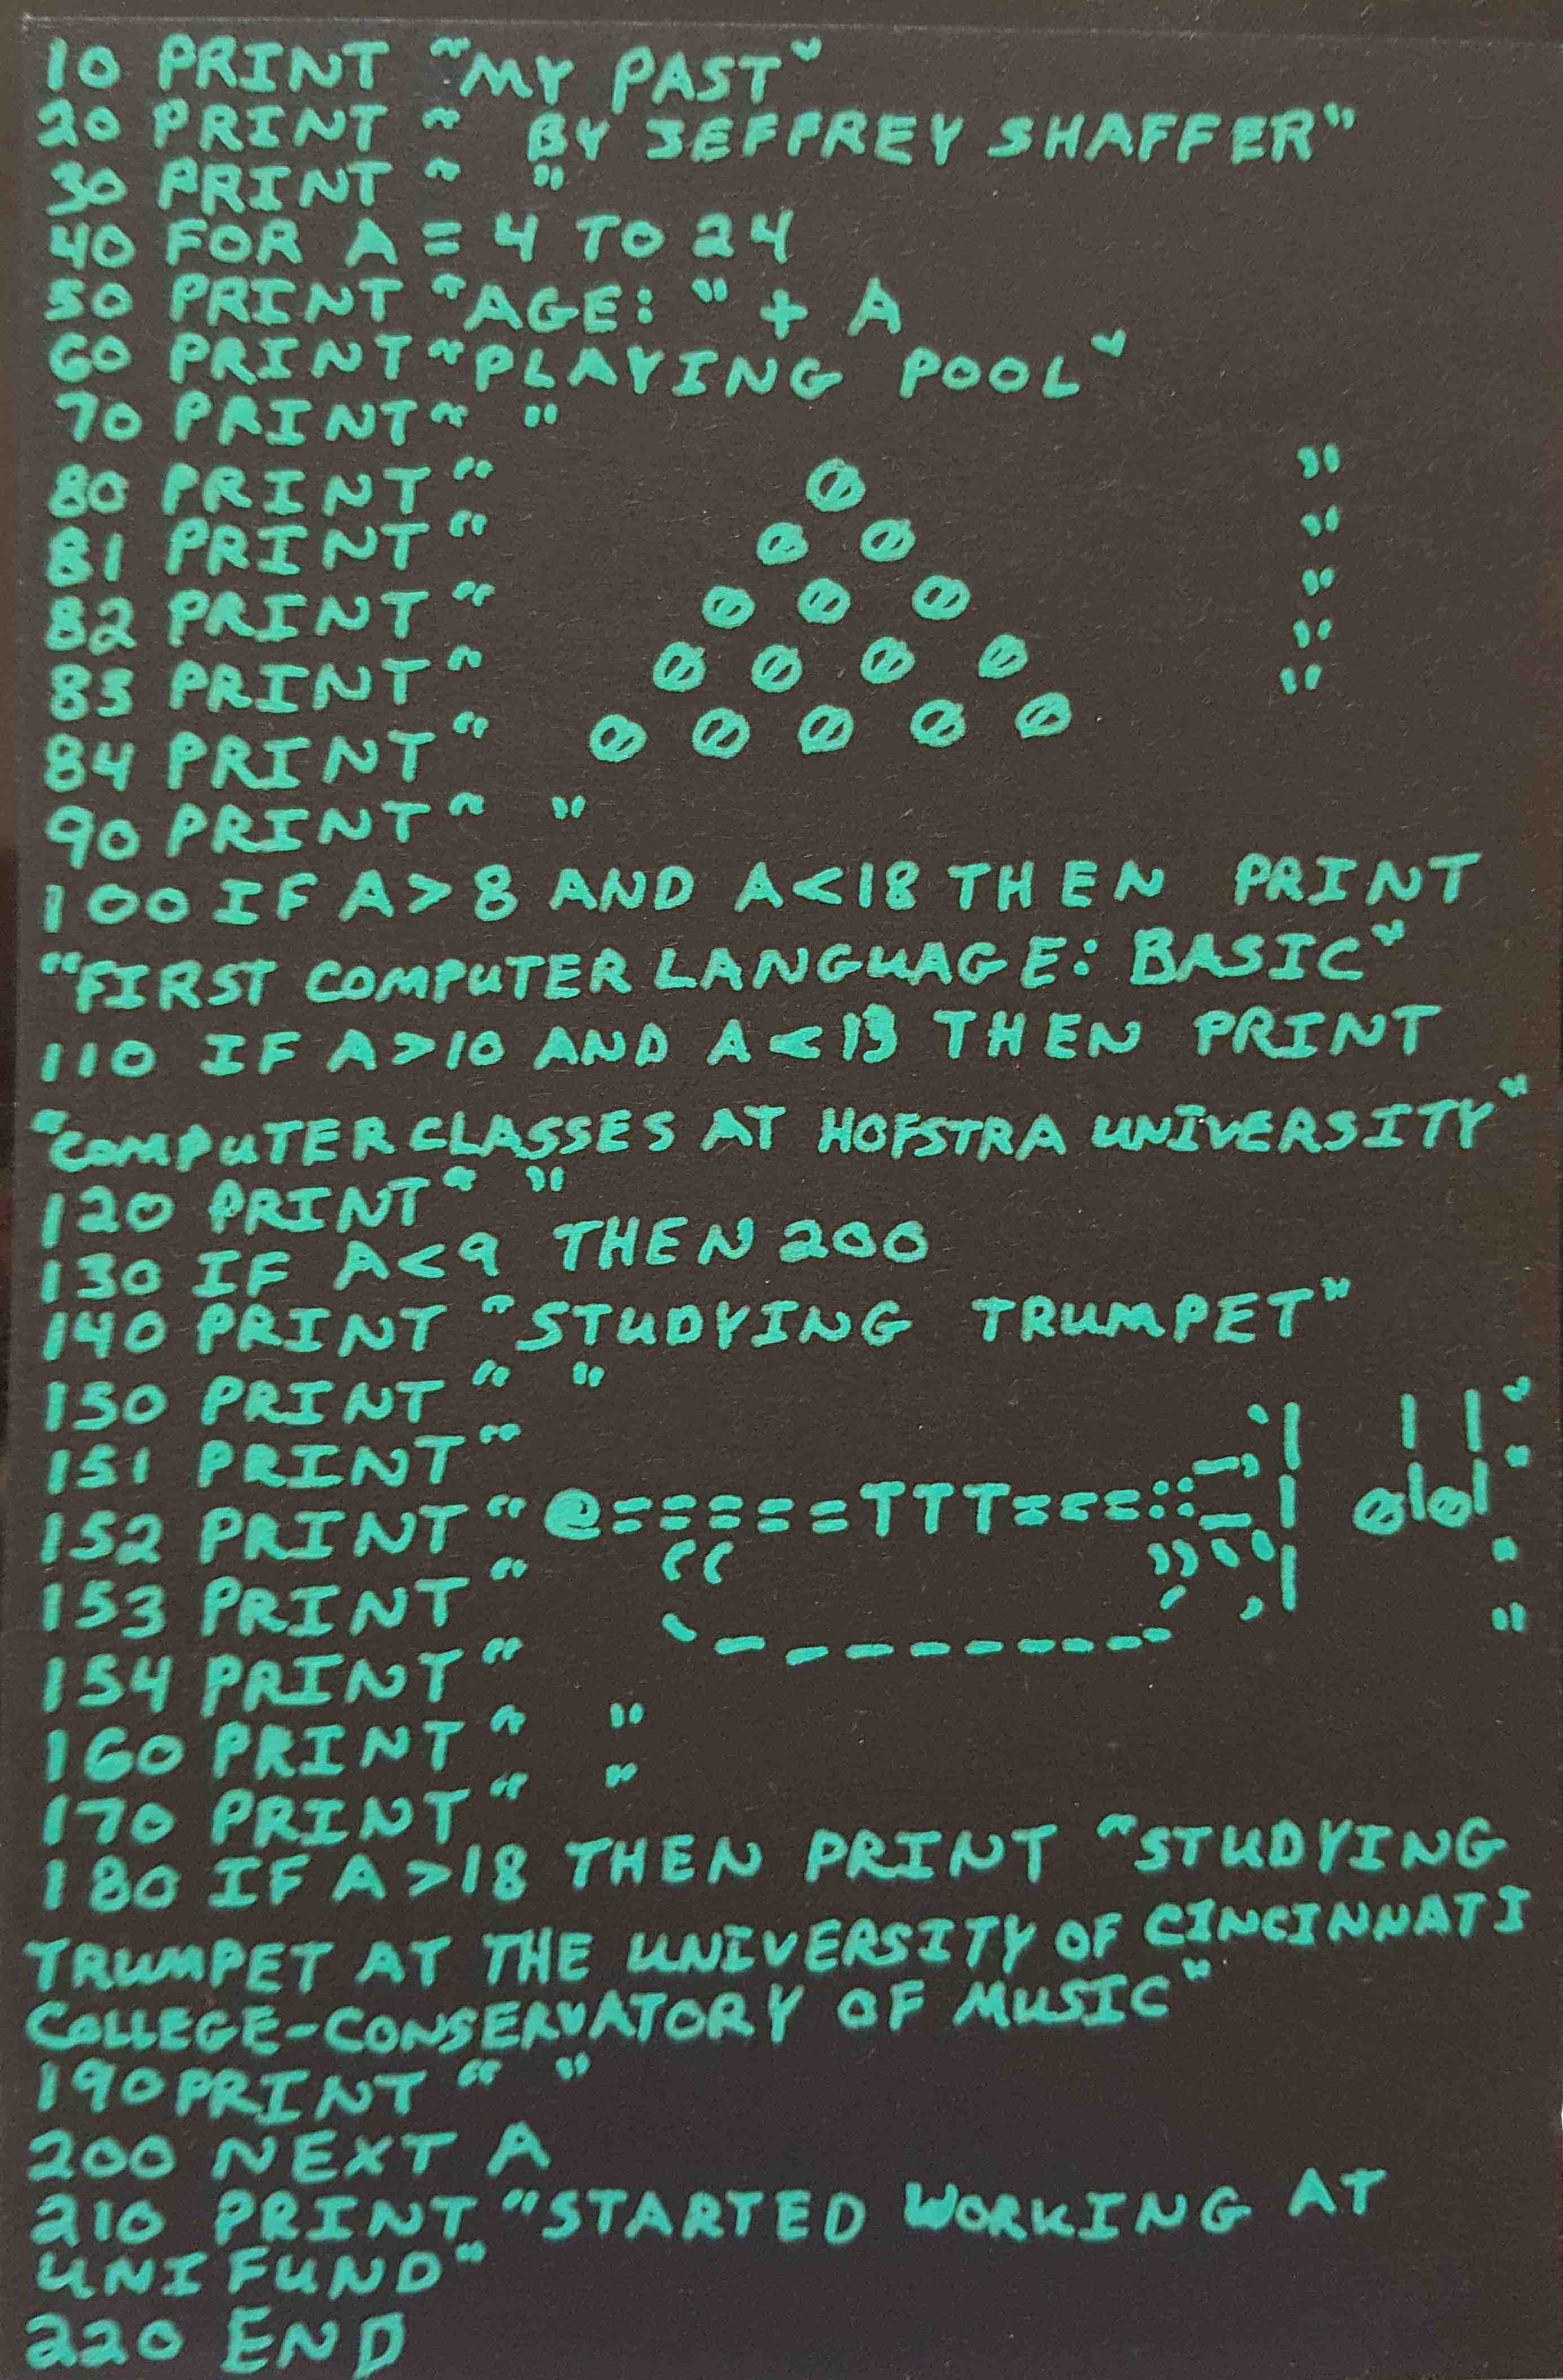 10 PRINT "MY PAST"
20 PRINT "  BY JEFFREY SHAFFER"
30 PRINT "  "
40 FOR A = 4 TO 24
50 PRINT "AGE: " + A
60 PRINT "PLAYING POOL"
70 PRINT "  "
80 PRINT "            0            "
81 PRINT "          0   0          "
82 PRINT "        0   0   0        "
83 PRINT "      0   0   0   0      "
84 PRINT "    0   0   0   0   0    "
90 PRINT "  "
100 IF A > 8 AND A < 18 THEN PRINT
"FIRST COMPUTER LANGUAGE: BASIC"
110 IF A > 10 AND A < 13 THEN PRINT
"COMPUTER CLASSES AT HOFSTRA UNIVERSITY"
120 PRINT "  "
130 IF A < 9 THEN 200
140 PRINT "STUDYING TRUMPET"
150 PRINT "  "
151 PRINT "                              _,'|   | | "
152 PRINT "@======TTT===::_ |  0|0| "
153 PRINT "   ((              ))''|     "
154 PRINT "    \_ _ _ _ _ _ _ _/  ,|     "
160 PRINT "  "
170 PRINT "  "
180 IF A > 18 THEN PRINT "STUDYING
TRUMPET AT THE UNIVERSITY OF CINCINNATI
COLLEGE-CONSERVATORY OF MUSIC"
190 PRINT "  "
200 NEXT A
210 PRINT "STARTED WORKING AT
UNIFUND"
220 END